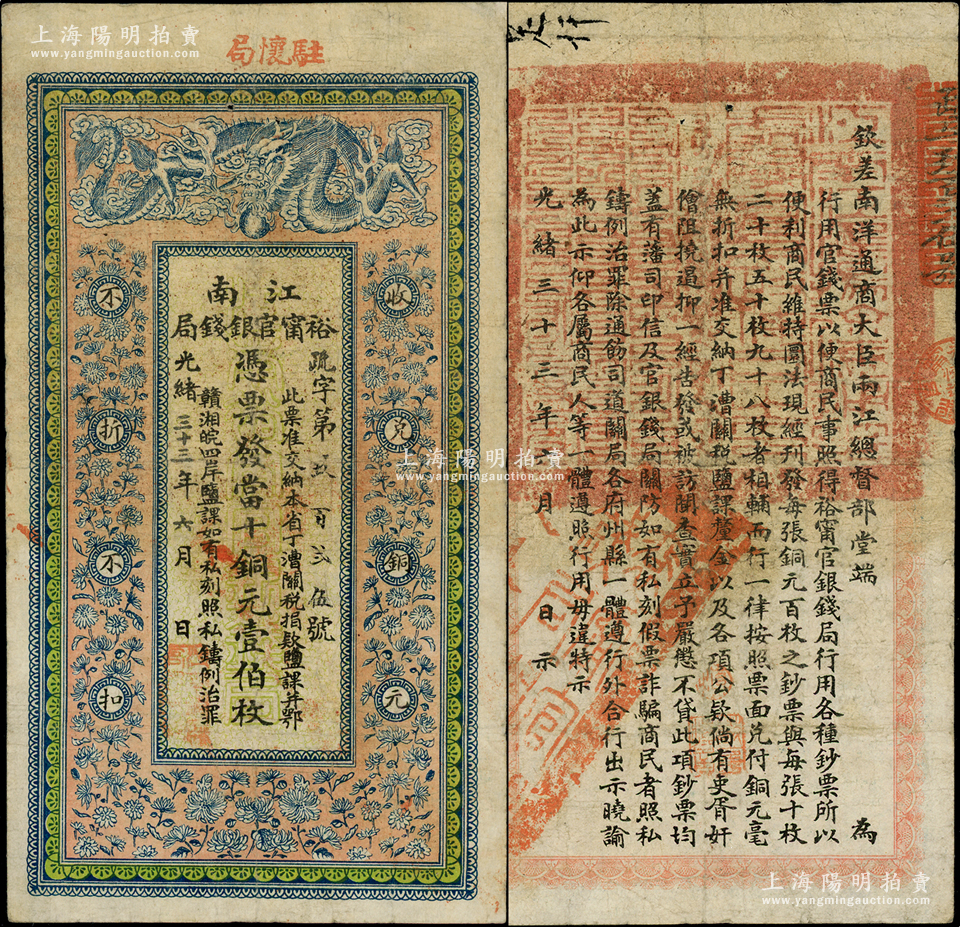 上海陽明拍賣
www.yangmingauction.com
駐懷局
江南
裕甯官銀錢局
疏字第玖百弍伍號
此票准交納本省丁漕關稅捐欵鹽課并鄂
憑票發當十銅元壹伯枚
贛湘皖四岸鹽課如有私刻照私鑄例治罪
光緒三十三年六月日
收兌銅元
不折不扣
欽差南洋通商大臣兩江總督部堂端為
行用官錢票以便商民事照得裕甯官銀錢局行用各種鈔票所以
便利商民維持圜法現經刊發每張銅元百枚之鈔票與每張十枚
二十枚五十枚九十八枚者相輔而行一律按照票面兌付銅元毫
無折扣并准交納丁漕關稅鹽課釐金以及各項公欵倘有吏胥奸
儈阻撓遏抑一經告發或被訪聞查實立予嚴懲不貸此項鈔票均
蓋有藩司印信及官銀錢局關防如有私刻假票詐騙商民者照私
鑄例治罪除通飭司道關局各府州縣一體遵行外合行出示曉諭
為此示仰各屬商民人等一體遵照行用毋違特示
光緒三十三年六月日示
上海陽明拍賣
www.yangmingauction.com
上海陽明拍賣
www.yangmingauction.com